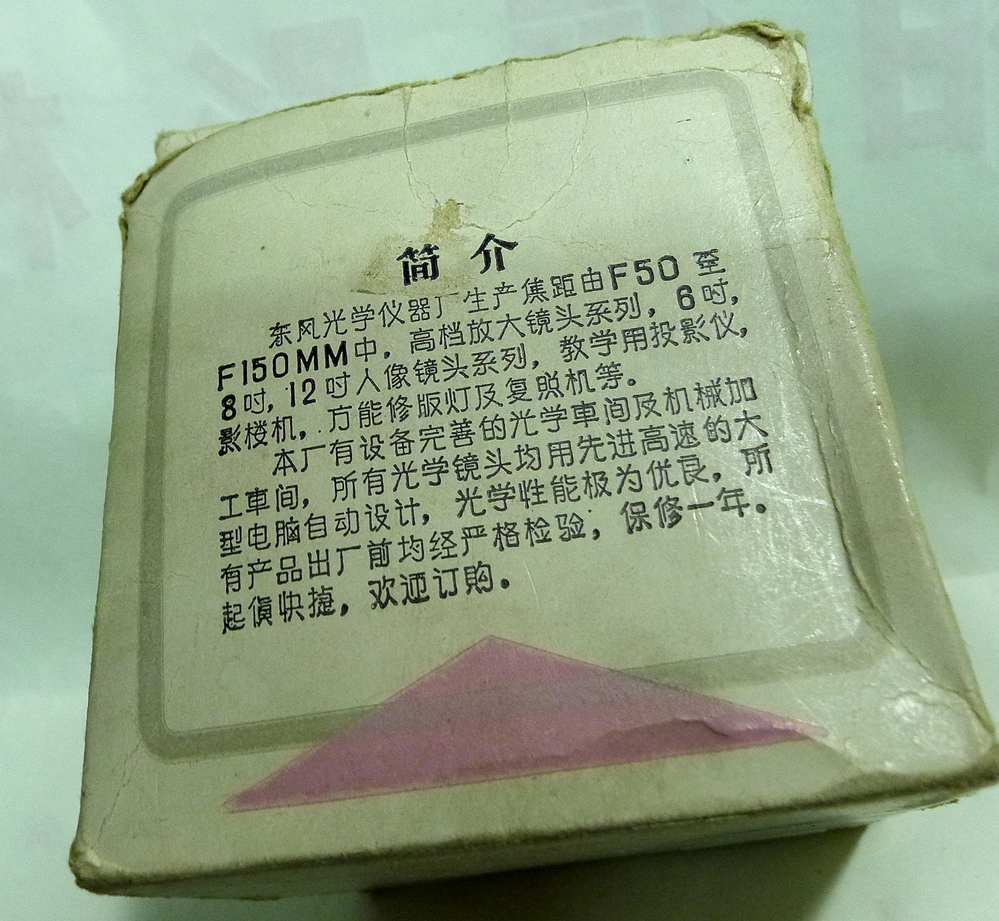 简介
东风光学仪器厂生产焦距由F50至
F150MM中，高档放大镜头系列，6吋，
8吋，12吋人像镜头系列，教学用投影仪，
影楼机，万能修版灯及复照机等。
本厂有设备完善的光学車间及机械加
工車间，所有光学镜头均用先进高速的大
型电脑自动设计，光学性能极为优良，所
有产品出厂前均经严格检验，保修一年。
起貨快捷，欢迎订購。